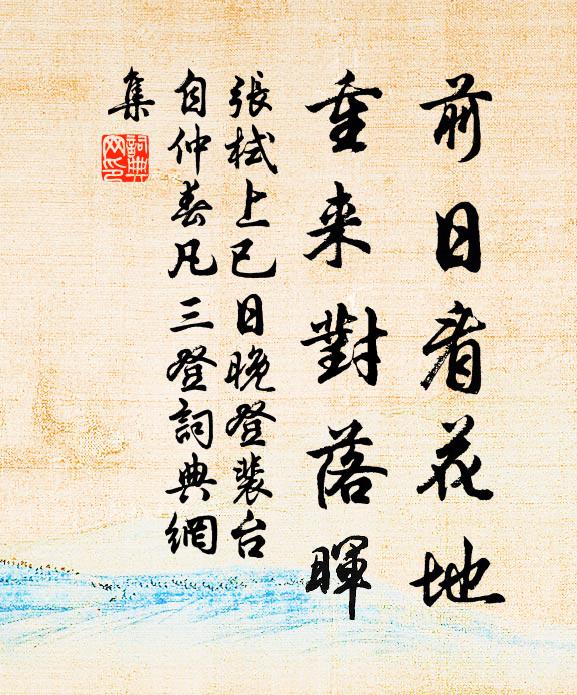 前日看花地
重来對落暉
張栻上巳日晚登裴台
自仲春凡三登詞典網
集
詞典网印